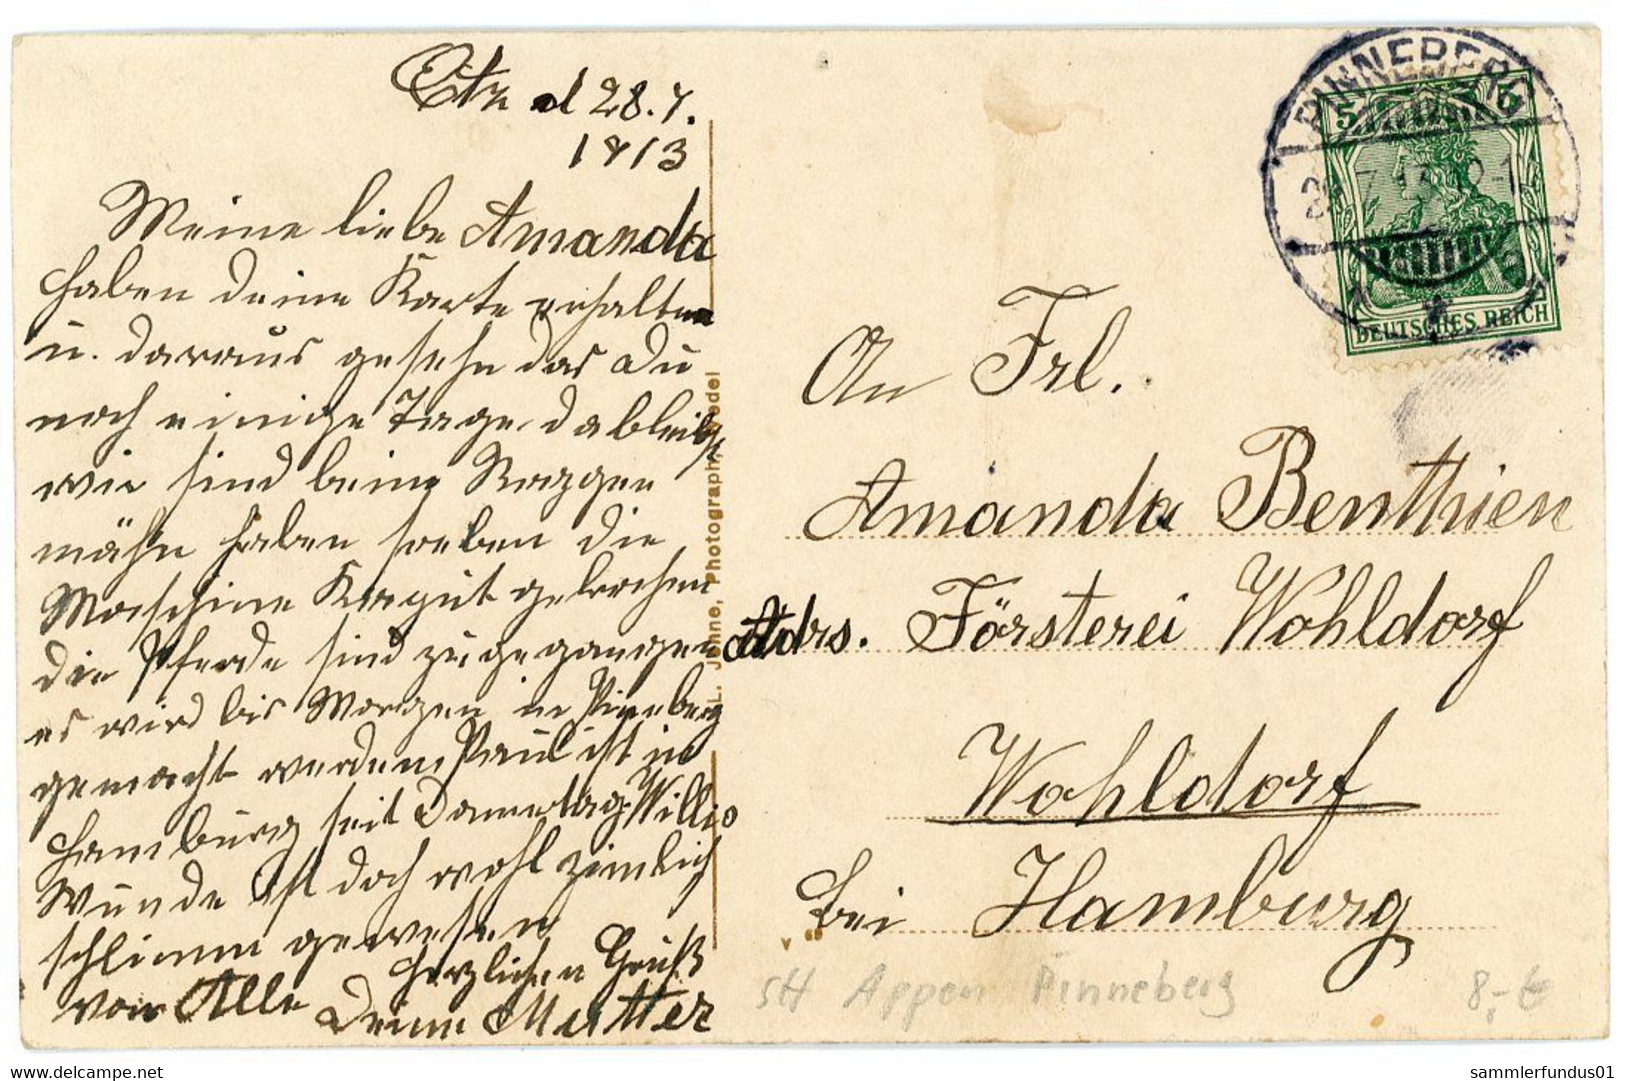 Etz d 28.7.
1913
Meine liebe Amanda
haben deine Karte erhalten
u. daraus gesehn das Du
noch einige Tage dableibst
wir sind beim Roggen
mähn haben soeben die
Maschine Kaputt gebrochen
die Pferde sind zugegangen
es wird bis Morgen in Pinneberg
gemacht werden Paul ist in
Hamburg seit Donnerstag Willis
Wunde ist doch wohl zimlich
schlimm gewesen
Herzlichen Gruß
von Alle Deine Mutter
L. Johne, Photograph, Wedel
PINNEBERG
5
DEUTSCHES REICH
An Frl.
Amanda Benthien
Adrs. Försterei Wohldorf
Wohldorf
bei Hamburg
SH Appen Pinneberg 8,- €
www.delcampe.net
sammlerfundus01